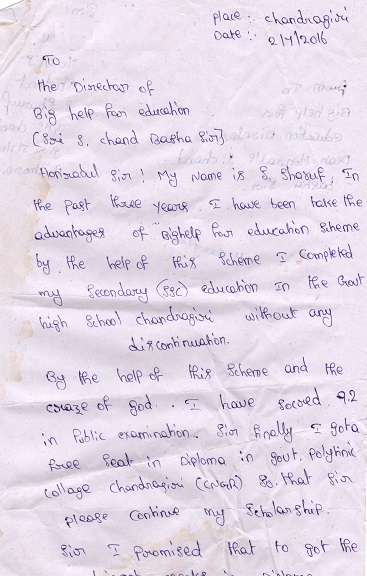 place :. chandragiri
Date :. 2/7/2016
TO
the Director of
Big help for education
(Sri S. chand Basha Sir)
Honorabul Sir! My Name is S. Sharuf, In
the past three years. I have been take the
advantages of "Bighelp for education Scheme
by the help of this Scheme I Completed
my Secondary (SSC) education In the Govt
high School chandragiri without any
discontinuation.
By the help of this Scheme and the
of god. I have Scored 9.2
in Public examination. Sir finally I got a
free Seat in Diploma in govt. polytnic
Collage Chandragiri So. that Sir
please Continue my Scholarship.
Sir I promised that to got the